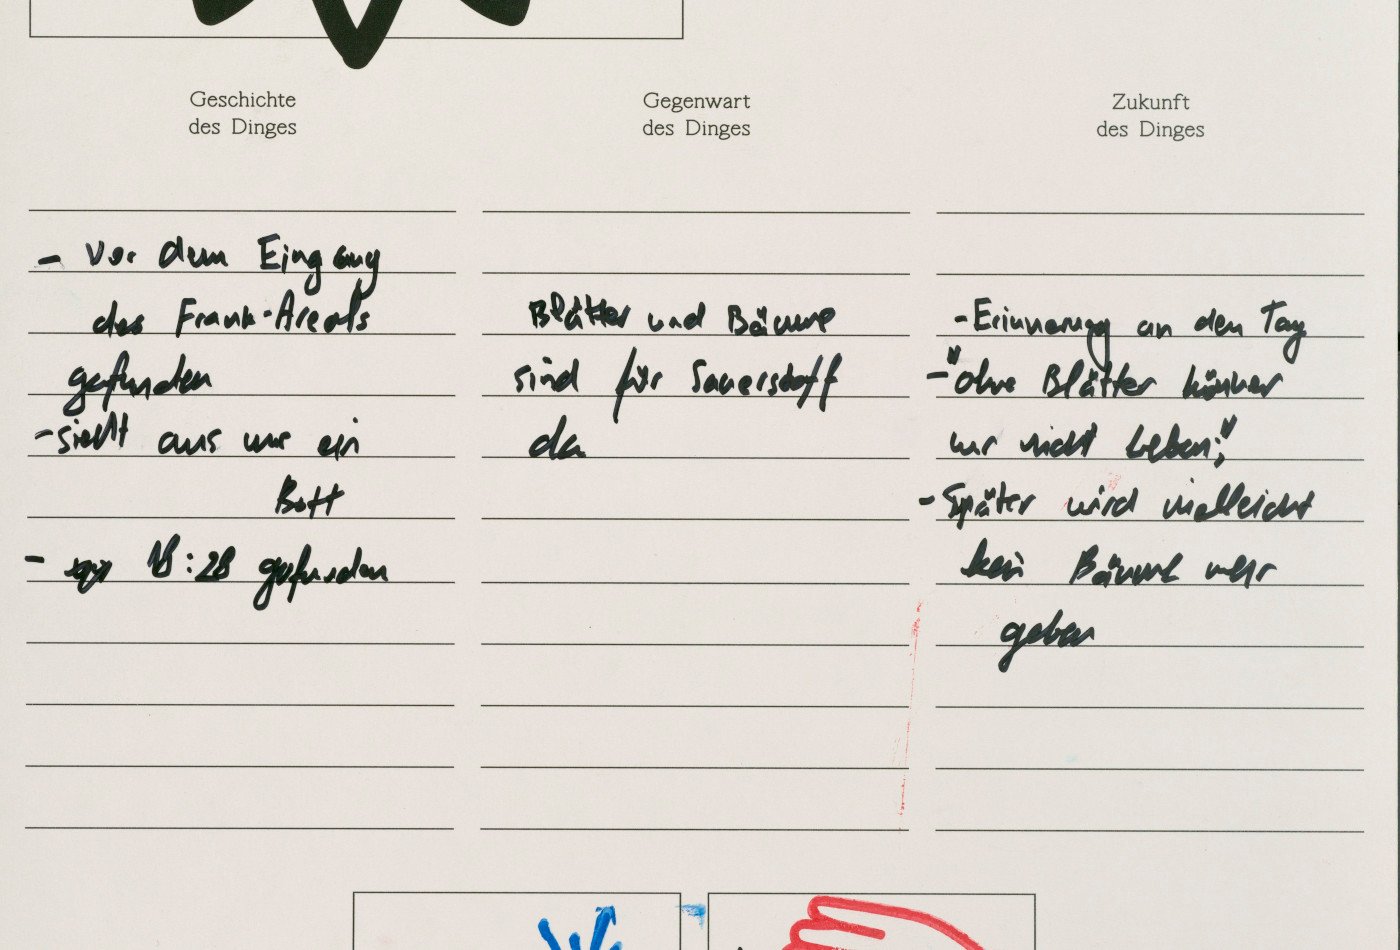 Geschichte
des Dinges
- Vor dem Eingang
des Frank-Areals
gefunden
- sieht aus wie ein
Bott
- 18:28 gefunden
Gegenwart
des Dinges
Blätter und Bäume
sind für Sauerstoff
da
Zukunft
des Dinges
- Erinnerung an den Tag
- "ohne Blätter können
wir nicht Leben;"
- Später wird vielleicht
kein Bäume mehr
geben